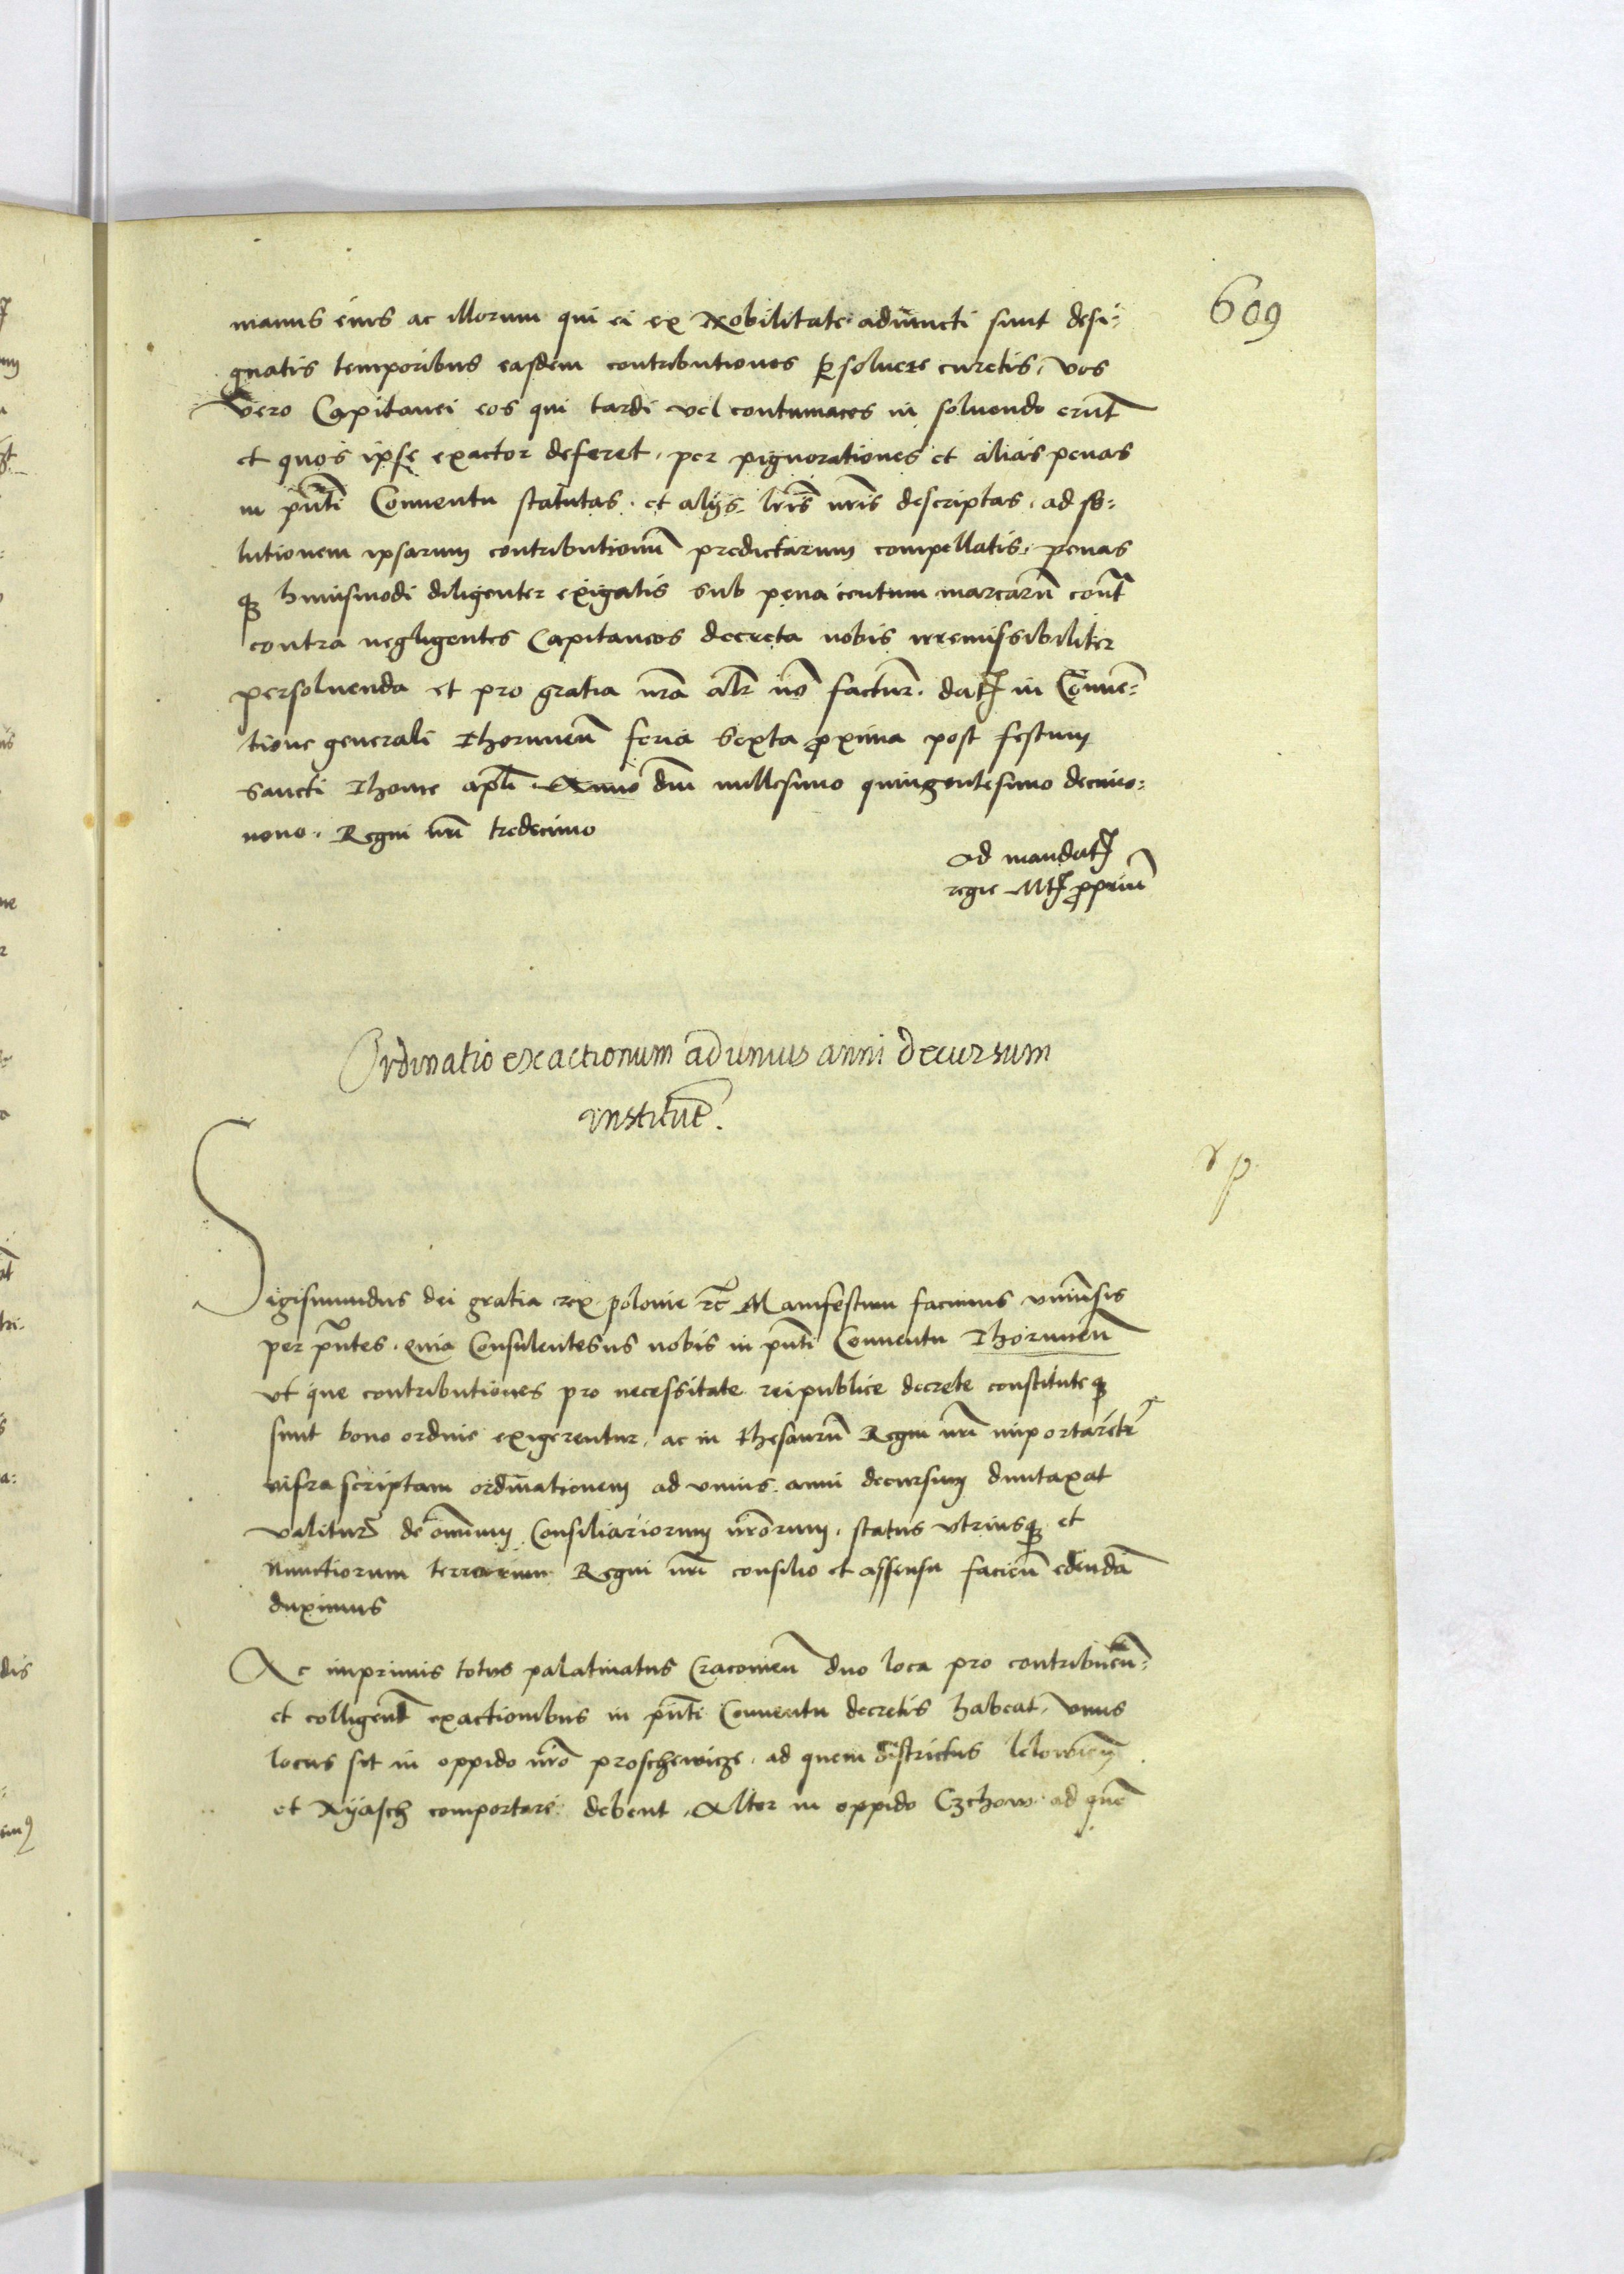 609
manus eius ac illorum qui ei ex Nobilitate adiuncti sunt desi-
gnatis temporibus easdem contributiones ꝑsoluere curetis, vos
vero Capitanei eos qui tardi vel contumaces in soluendo erūt
et quos ipse exactor deferet, per pignorationes et alias penas
in pn̄ti Conuentu statutas. et alijs lr̄is nr̄is descriptas, ad so-
lutionem ipsarum contributionū predictarum compellatis, penas
qꝫ huiusmodi diligenter exigatis sub pena centum marcarū
contra negligentes Capitaneos decreta nobis irremissibiliter
persoluenda et pro gratia nr̄a alr̄ nō factur. datꝭ in Cōuen-
tione generali Thorunen̄ feria sexta ꝓxima post festum
sancti Thome apl̄i Anno dn̄i millesimo quingentesimo decimo-
nono. Regni nr̄i tredecimo
Ad mandatꝭ
regie Mtꝭ ꝓpriū
Ordinatio exactionum ad unius anni decursum
institut̄.
Sigismundus dei gratia rex polonie rc̄ Manifestum facimus vniūsis
per pn̄tes. quia Consulentes nobis in pn̄ti Conuentu Thorunen̄
vt que contributiones pro necessitate reipublice decrete constitute qꝫ
sunt bono ordine exigerentur, ac in thesaurū Regni nr̄i importarētr
infra scriptam ordinationem ad vnius anni decursum duntaxat
valitur̄ de omnium Consiliariorum nr̄orum, status vtriusqꝫ et
Nunctiorum terrarum Regni nr̄i consilio et assensu facien̄ edendā
duximus
Ac imprimis totus palatinatus Cracouien̄ duo loca pro contribuen̄-
et colligend̄ exactionibus in pn̄ti Conuentu decretis habeat, vnus
locus sit in oppido nr̄o proschewicze, ad quem districtus lelowien̄
et Xyąsch comportari debent, Alter in oppido Czchow ad quē